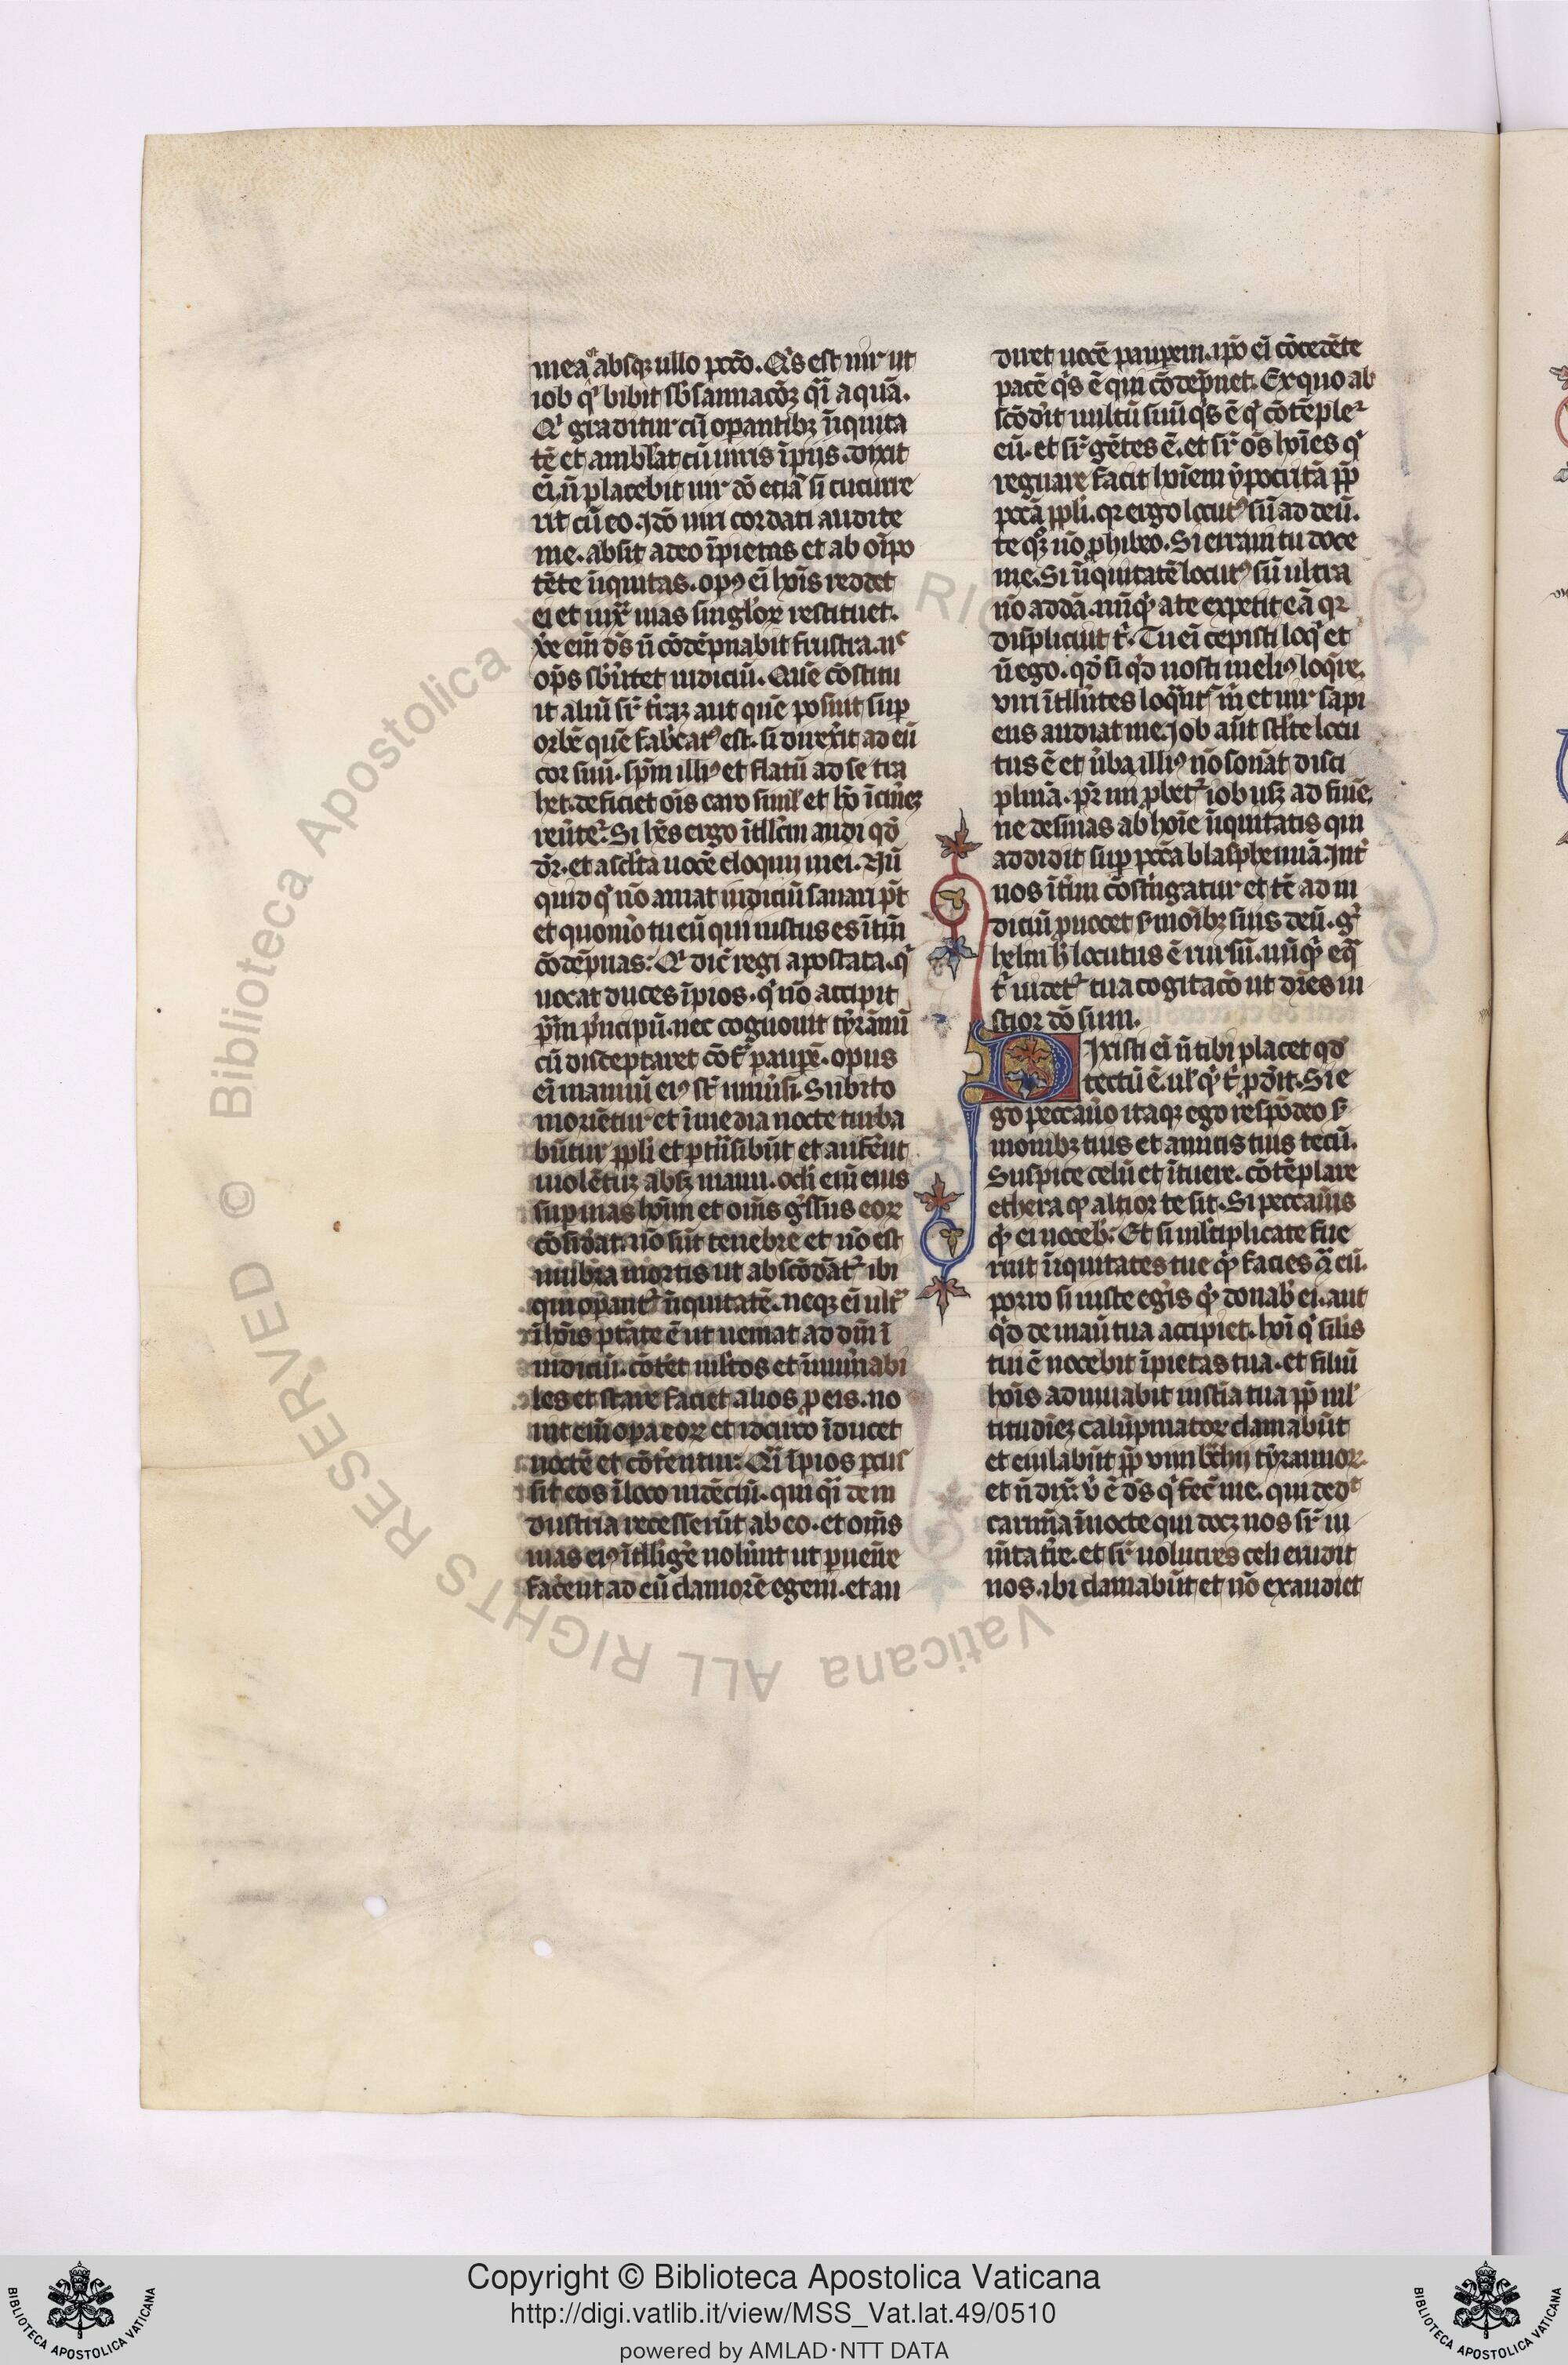 mea absqz ullo pccō. Qis est uir ut
iob qi bibit sbsannacōz qi aquā.
Qi graditur cū operantibz īiquita
tē et amblat cū uiris īpijs. dixit
ei. ñ placebit uir dō etiā si cucurre
rit cū eo. Idō uiri cordati audite
me. absit a deo īpietas et ab oīpo
tēte īiquitas. opꝰ ei hōis reddet
ei et iux uias singlor restituet.
ue eni ds ñ cōdēpnabit frustra. nc
ops sbutet iudiciū. Quē cōstitu
it aliū sr traz aut quē posuit sup
orbē quē fabcatꝰ est. si direxit ad eū
cor suū. spm illiꝰ et flatū ad se tra
het. deficiet ois caro simul et hō ī cinez
reutet. Si hes ergo ītllcm audi qd
dr. et asclta uocē eloquij mei. Nū
quid qi nō amat iudiciū sanari pt
et quomō tu eū qui iustus es ītm
cōdēpnas. Qi dic regi apostata. qi
uocat duces īpios. qi nō accipit
psonam pncipū. nec cognouit tyrānū
cū disceptaret cōt paupē. opus
ei manuū eiꝰ st uniusi. Subito
moriētur et ī media nocte turba
būtur ppli et ptnsibūt et auferet
uiolētuz absz manu. ocli eni eius
sup uias hoim et oms gssus eor
cōsidat. nō sūt tenebre et nō est
umbra mortis ut abscōdāt ibi
qui opant īiquitatē. neqz ei ult
ī hōis ptate ē ut ueniat ad dm ī
iudiciū. cōtet mltos et īnumabi
les et stare faciet alios p eis. no
uit eni opa eor et idcirco īducet
noctē et cōterentur. Qi īpios pcus
sit eos ī loco uidētiū. qui qi de in
dustria recesserūt ab eo. et oms
uias eiꝰ ītlligē nolūnt ut puenire
facent ad eū clamorē egeni. et au
diret uocē paupem. ipo ei cōcedēte
pacē qis ē qui cōdēpnet. Ex quo ab
scōdit uultū suū qis ē qi cōtēplet
eū. et sr gētes ē. et sr os hoies qi
regnare facit hoiem ypocritā pp
pccā ppli. qr ergo locutꝰ sū ad deū.
te qz nō phibeo. Si erraui tu doce
me. Si īiquitatē locutꝰ sū ultra
nō addā. nūqi a te expetit eā qr
displicuit ti. Tu ei cepisti loqi et
ñ ego. qd si qd nosti meliꝰ loqre.
viri ītllītes loqnt m et uir sapi
ens audiat me. Job aūt stlte locu
tus ē et uba illiꝰ nō sonāt disci
plinā. pr mi pbet iob usz ad finē.
ne desinas ab hoie īiquitatis qui
addidit sup pccā blasphemiā. Int
nos ītim cōstngatur et tc ad iu
diciū puocet smoibz suis deū. g
helui h locutus ē rursū. nūqi eq
ti uidet tua cogitacō ut dres iu
stior dō sum.
Dixisti ei ñ tibi placet qd
rectū ē. ul qi ti pdit. Si e
go peccauo itaqz ego respōdeo s
monibz tuis et amicis tuis tecū.
Suspice celū et ītuere. cōtēplare
ethera qi altior te sit. Si peccauis
qi ei noceb. Et si mltiplicate fue
rint īiquitates tue qi facies ɔ eū.
porro si iuste egis qi donab ei. aut
qd de manu tua accipiet. hoi qi silis
tui ē nocebit īpietas tua. et filiū
hōis adiuuabit iusticia tua pp mul
titudīez calūpniator clamabūt
et eiulabūt pp vim bchij tyrannor.
et ñ dix. v ē ds qi fec me. qui dedt
carmīa ī nocte qui docz nos sr iu
mta tre. et sr uolucres celi erudit
nos. ibi clamabūt et nō exaudiet
© Biblioteca Apostolica Vaticana ALL RIGHTS RESERVED
Copyright © Biblioteca Apostolica Vaticana
http://digi.vatlib.it/view/MSS_Vat.lat.49/0510
powered by AMLAD·NTT DATA
BIBLIOTECA APOSTOLICA VATICANA
BIBLIOTECA APOSTOLICA VATICANA